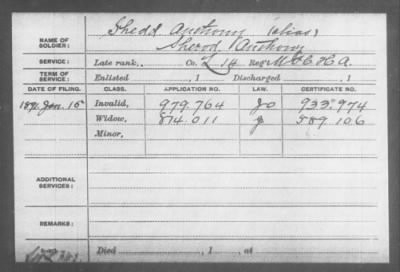 NAME OF SOLDIER: Shedd Anthony (alias)
Sherod Anthony
SERVICE: Late rank, Co. L 14 Reg't U.S.C.H.A.
TERM OF SERVICE: Enlisted , 1 Discharged , 1
DATE OF FILING. CLASS. APPLICATION NO. LAW. CERTIFICATE NO.
1891 Jan. 15 Invalid, 979.764 933.974
Widow, 814.011 589.106
Minor,
ADDITIONAL SERVICES:
REMARKS:
Died , 1 , at